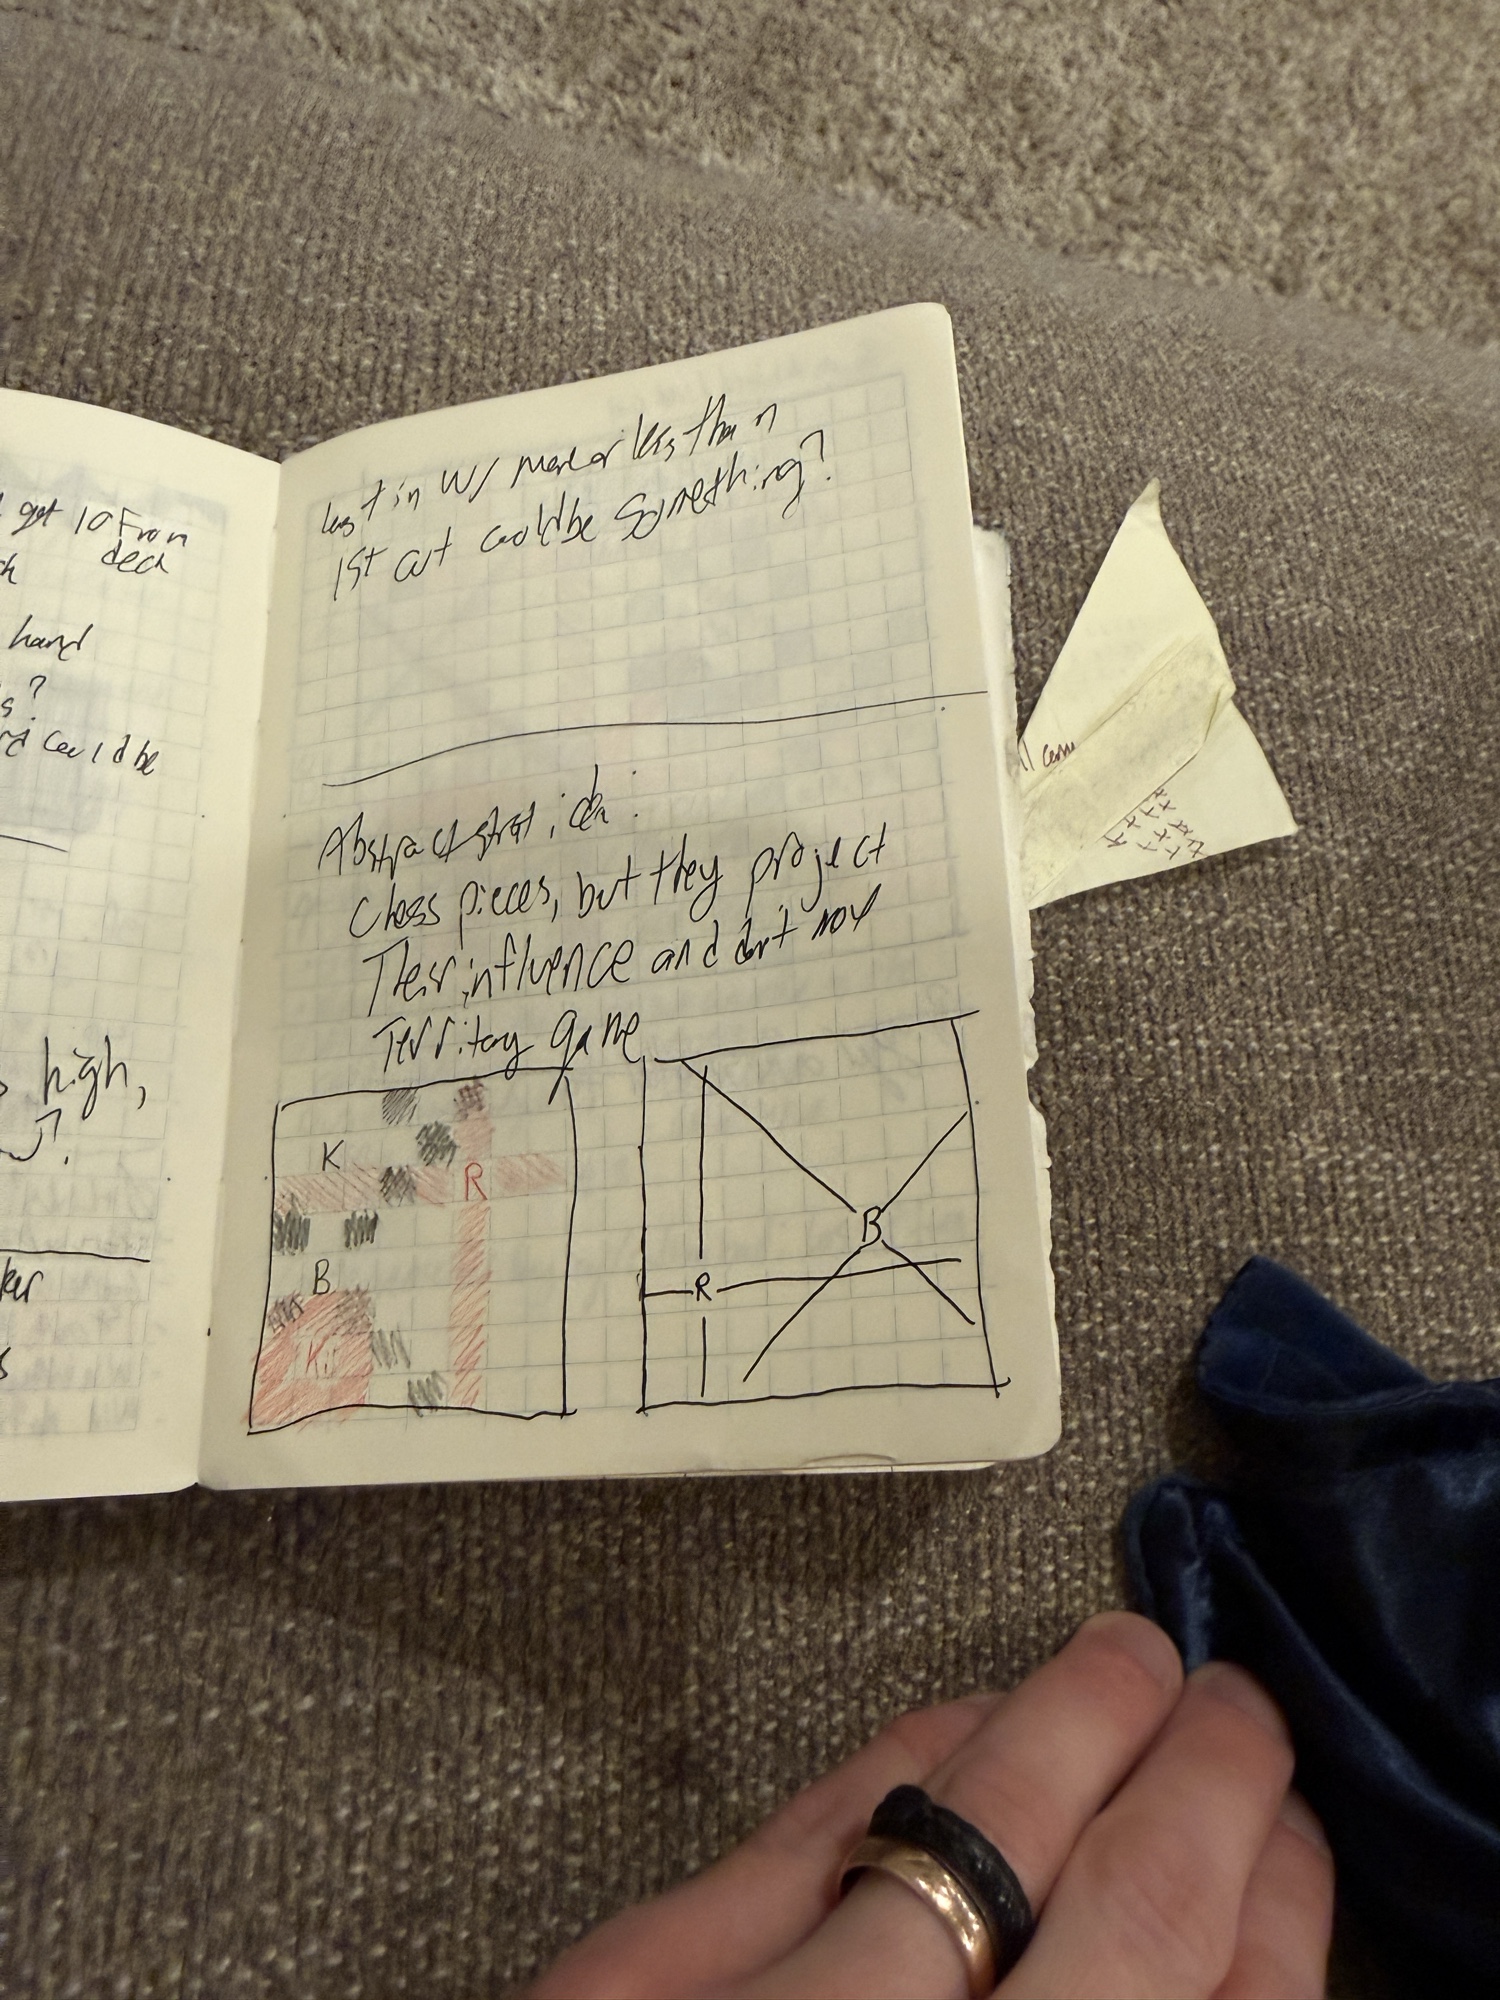 get 10 From
deck
hand
s?
could be
high,
last in w/ more or less than
1st out could be something?
Abstract strat idea:
Chess pieces, but they project
Their influence and don't move
Territory game
K
R
B
Kn
B
R